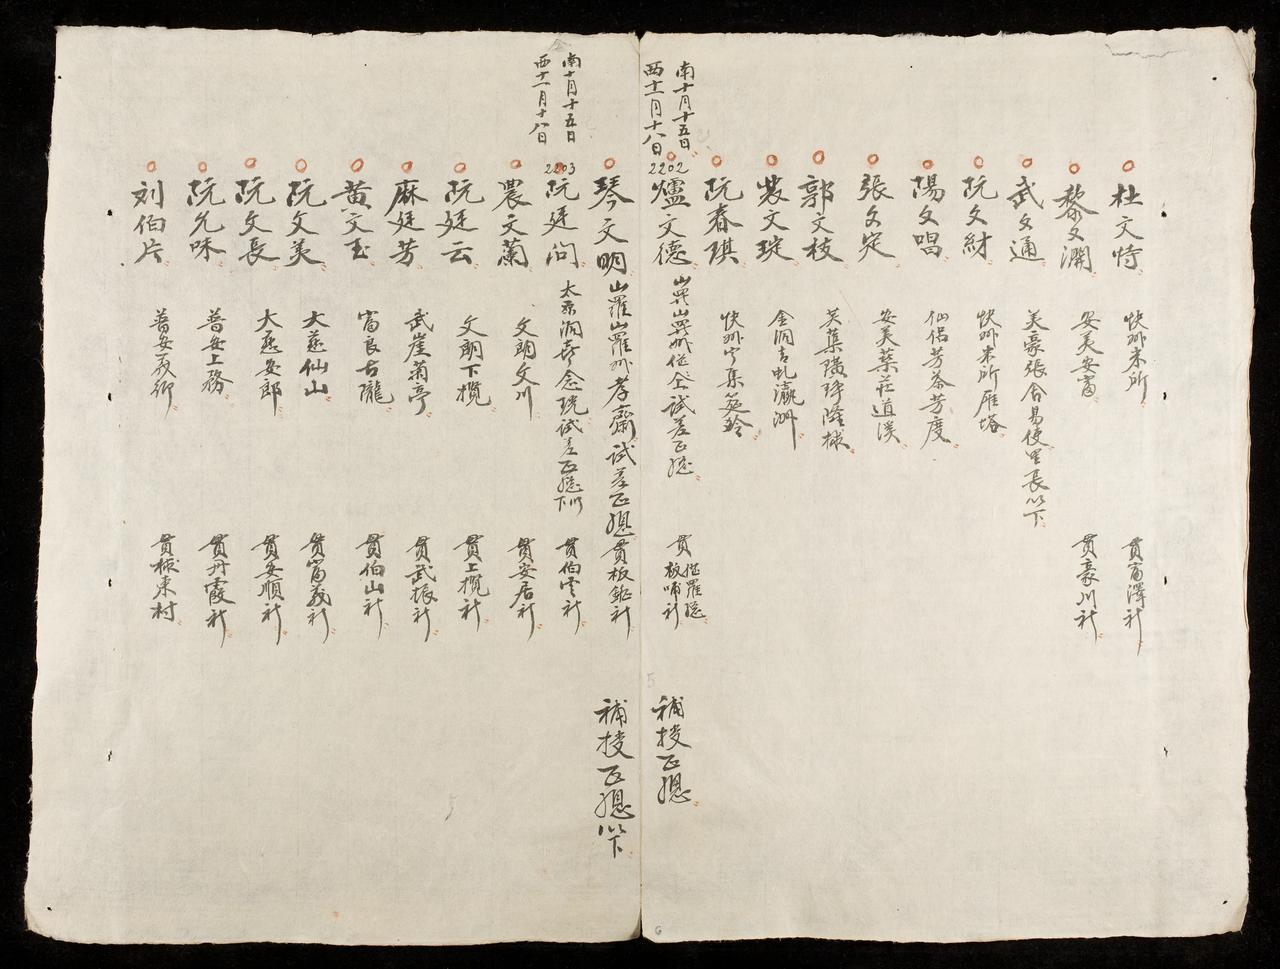 杜文恃 快州末所 貫富澤社
黎文瀾 安美安富 貫豪川社
武文通 芙豪張舍易使里長以下
阮文財 快州末所雁塔
陽文唱 仙侶芳茶芳度
張文定 安美葉莊道溪
郭文枝 芙蕖
裴文琔 金洞吉 瀛洲
阮春琪 快州 筵
南十月十五日
西十一月十八日
2202
爐文德 試差正總 貫 羅總板哺社 補授正總
琴文明 山羅山羅州孝齋試差正總 貫板鉦社 補授正總以下
南十月十五日
西十一月十八日
2203
阮廷问 太原洞喜念 試差正總以下 貫伯雲社
農文蘭 文朗文川 貫安居社
阮廷云 文朗下欖 貫上欖社
麻廷芳 武崖菊亭 貫武振社
黄文玉 富良古隴 貫伯山社
阮文美 大慈仙山 貫富義社
阮文長 大慈安郎 貫安順社
阮允味 普安上務 貫丹霞社
刘伯片 普安 貫 東村
5
6